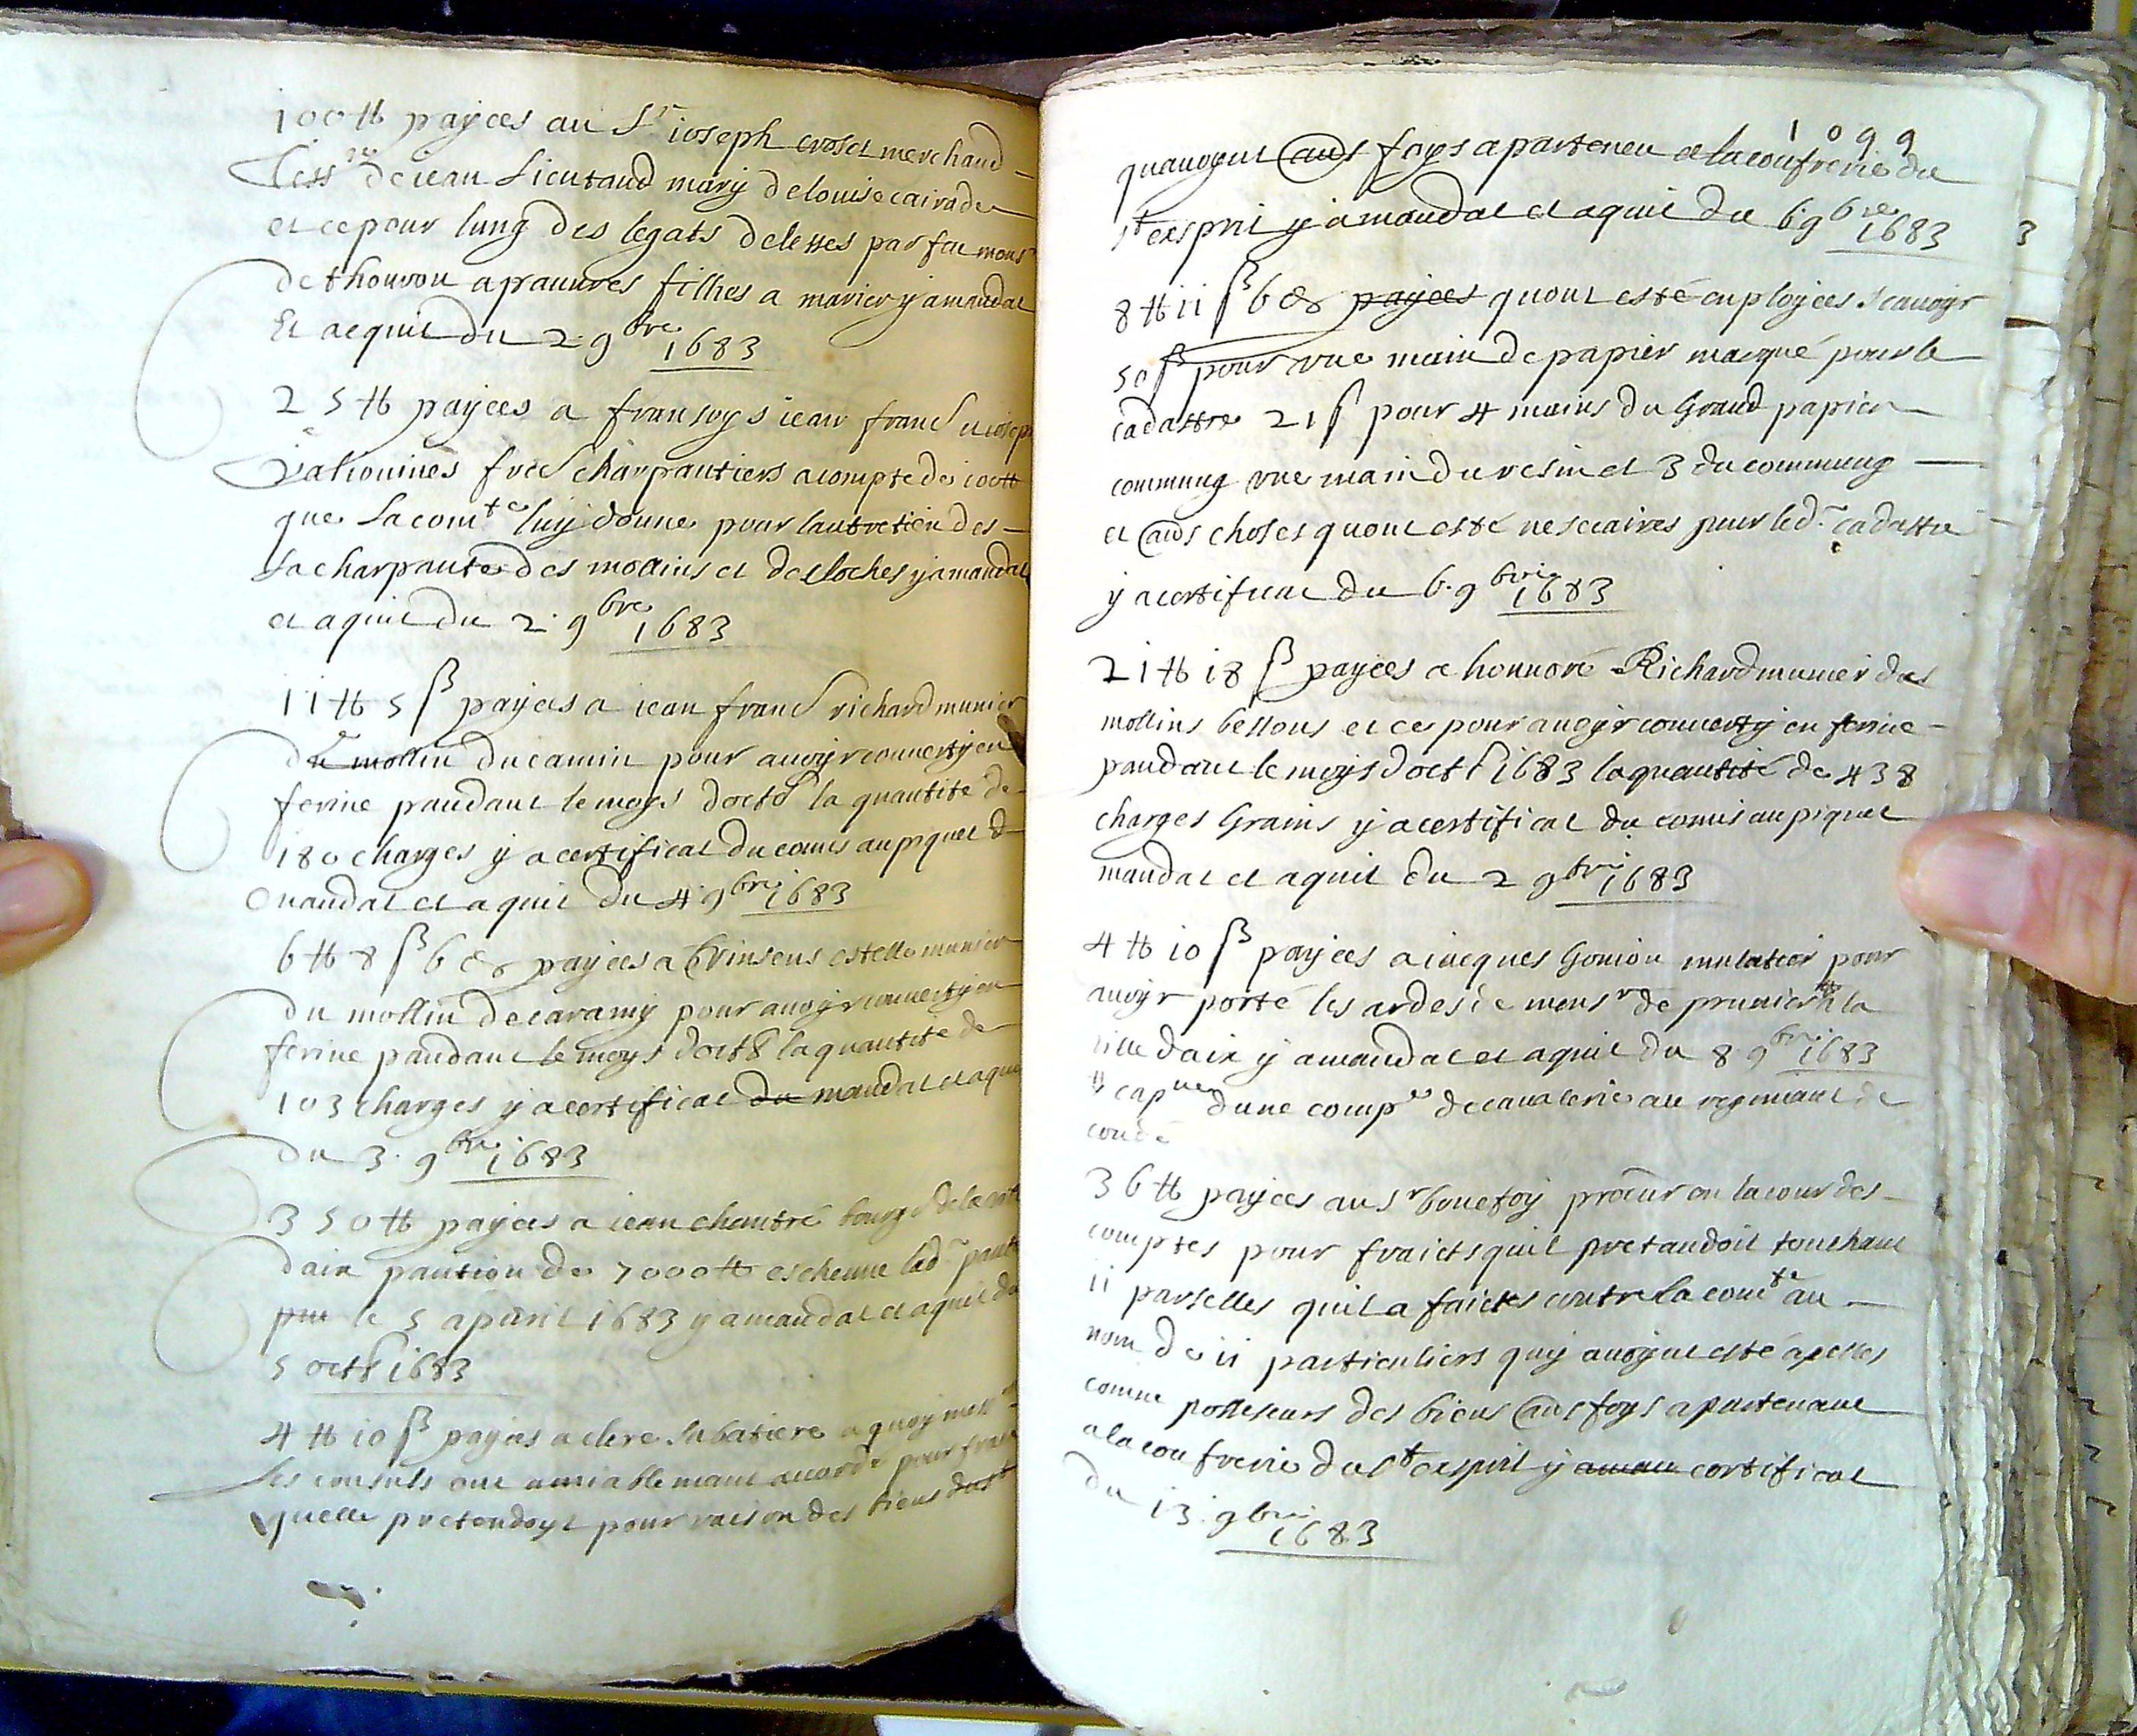 100 ₶ payees au Sr ioseph croset merchand
Cess.re de iean Lieutaud mary de louise cairade
et ce pour lung des legats delesses par fac mons.r
de thouron a prauvres filhes a marier y a mandat
Et acquit du 2. 9bre 1683
25 ₶ payees a fransoys iean franc et ioseph
frec charpantiers a compte de 100 ₶
que la com.te luy donne pour lautretien des
La charpante des mollins et de cloches y a mandat
et aquit du 2. 9bre 1683
11 ₶ 5 ß payees a iean franc richard munier
du mollin du camin pour avoyr converty en
ferine pandant le moys doct8 la quantite de
180 charges y a certificat du comis au piquet d
mandat et aquit du 4. 9bre 1683
6 ₶ 8 ß 6 d payees a Vinsens estelle munier
du mollin de caramy pour avoyr converty en
ferine pandant le moys doct8 la quantite de
103 charges y a certificat du mandat et aquit
du 3. 9bre 1683
350 ₶ payees a iean chautré bourg.s de la ville
daix pantion de 7000 ₶ escheue lad. pant
le 5 apvril 1683 y a mandat et aquit du
5 oct8 1683
4 ₶ 10 ß payees a clere Sabatiere a quoy mess.rs
les consuls ont amiablemant accordé pour frais
quelle pretendoyt pour raison des biens dust
1099
quavoyent au.s foys apartenen a la confrerie du
st exsprit y a mandat et aquit du 6 9bre 1683
8 ₶ 11 ß 6 d payees quont esté employees scavoyr
50 ß pour vne main de papier marqué pour le
cadattre 21 ß pour 4 mains du Grand papier
commung vne main du resin et 3 du commung
et au.s choses quont esté nesecaires pour led. cadattre
y a certificat du 6. 9bre 1683
21 ₶ 18 ß payees a honnoré Richard munier des
mollins bessons et ce pour avoyr converty en ferine
pandant le moys doct8 1683 la quantité de 438
charges Grains y a certificat du comis au piquet
mandat et aquit du 2 9bre 1683
4 ₶ 10 ß payees a iacques Gouiou mulatier pour
avoyr porté les ardes de mons.r de prunier a la
ville daix y a mandat et aquit du 8. 9bre 1683
cap.ne dune comp.e de cavalerie au regimant de
condé
36 ₶ payees au Sr bonefoy procur en la cour des
comptes pour fraicts quil pretandoit touchant
11 parselles quil a faictes contre la com.te au
nom de 11 particuliers quy avoyent esté apelles
comme posseseurs des biens au.s foys apartenant
a la confrerie du st exsprit y a man certificat
du 13. 9bre 1683